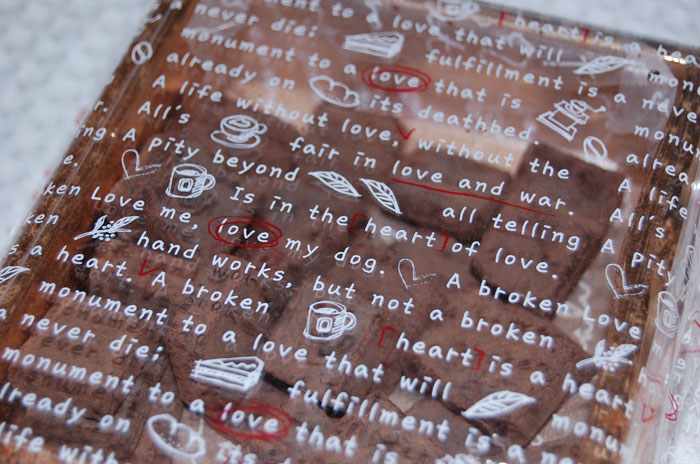 [heart] is a hea
ment to a love that will monu
never die: fulfillment is a neve
monument to a love that is monu
already on its deathbed. alrea
A life without love, without the A life
All's fair in love and war. All's
ng A Pity beyond all telling A Pity
e. Is in the [heart] of love.
ken Love me, love my dog. A broken Love
ken hand works, but not a broken
s a heart. A broken [heart] is a heart
monument to a love that will monu
a never die: fulfillment is a ne
monument to a love that is
already on its
life with